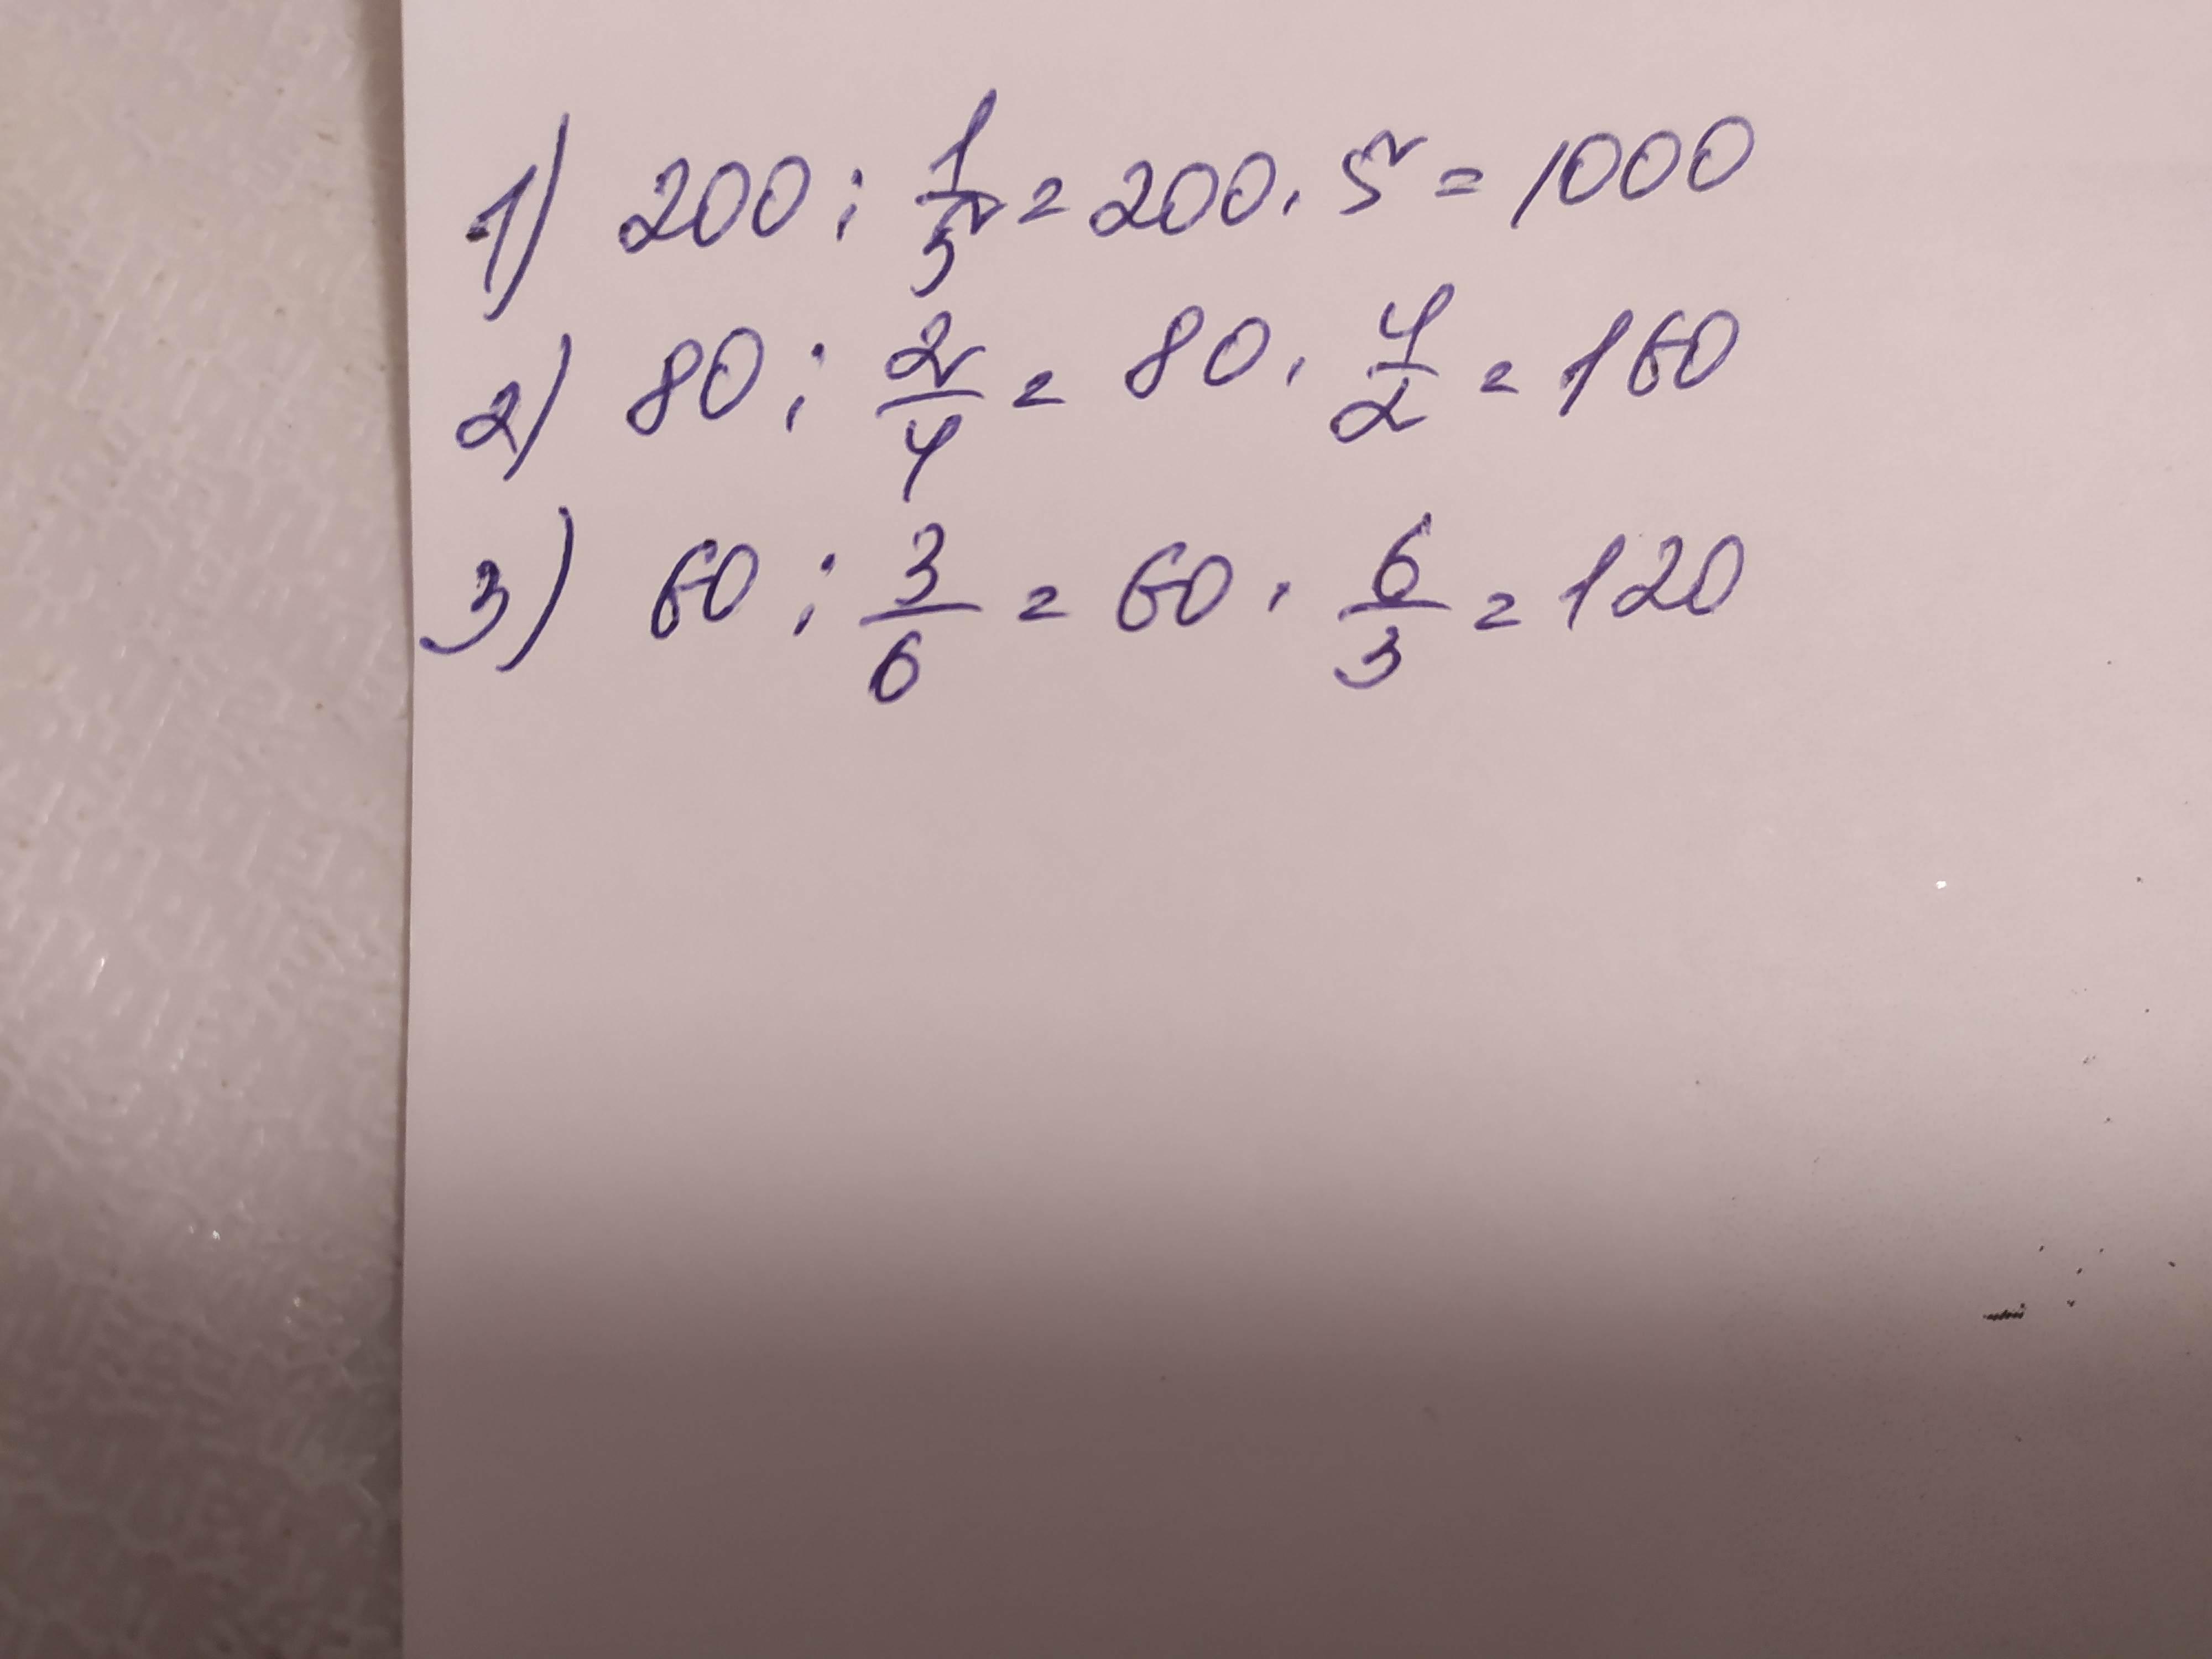 1) 200 : 1/5 = 200 · 5 = 1000
2) 80 : 2/4 = 80 · 4/2 = 160
3) 60 : 3/6 = 60 · 6/3 = 120